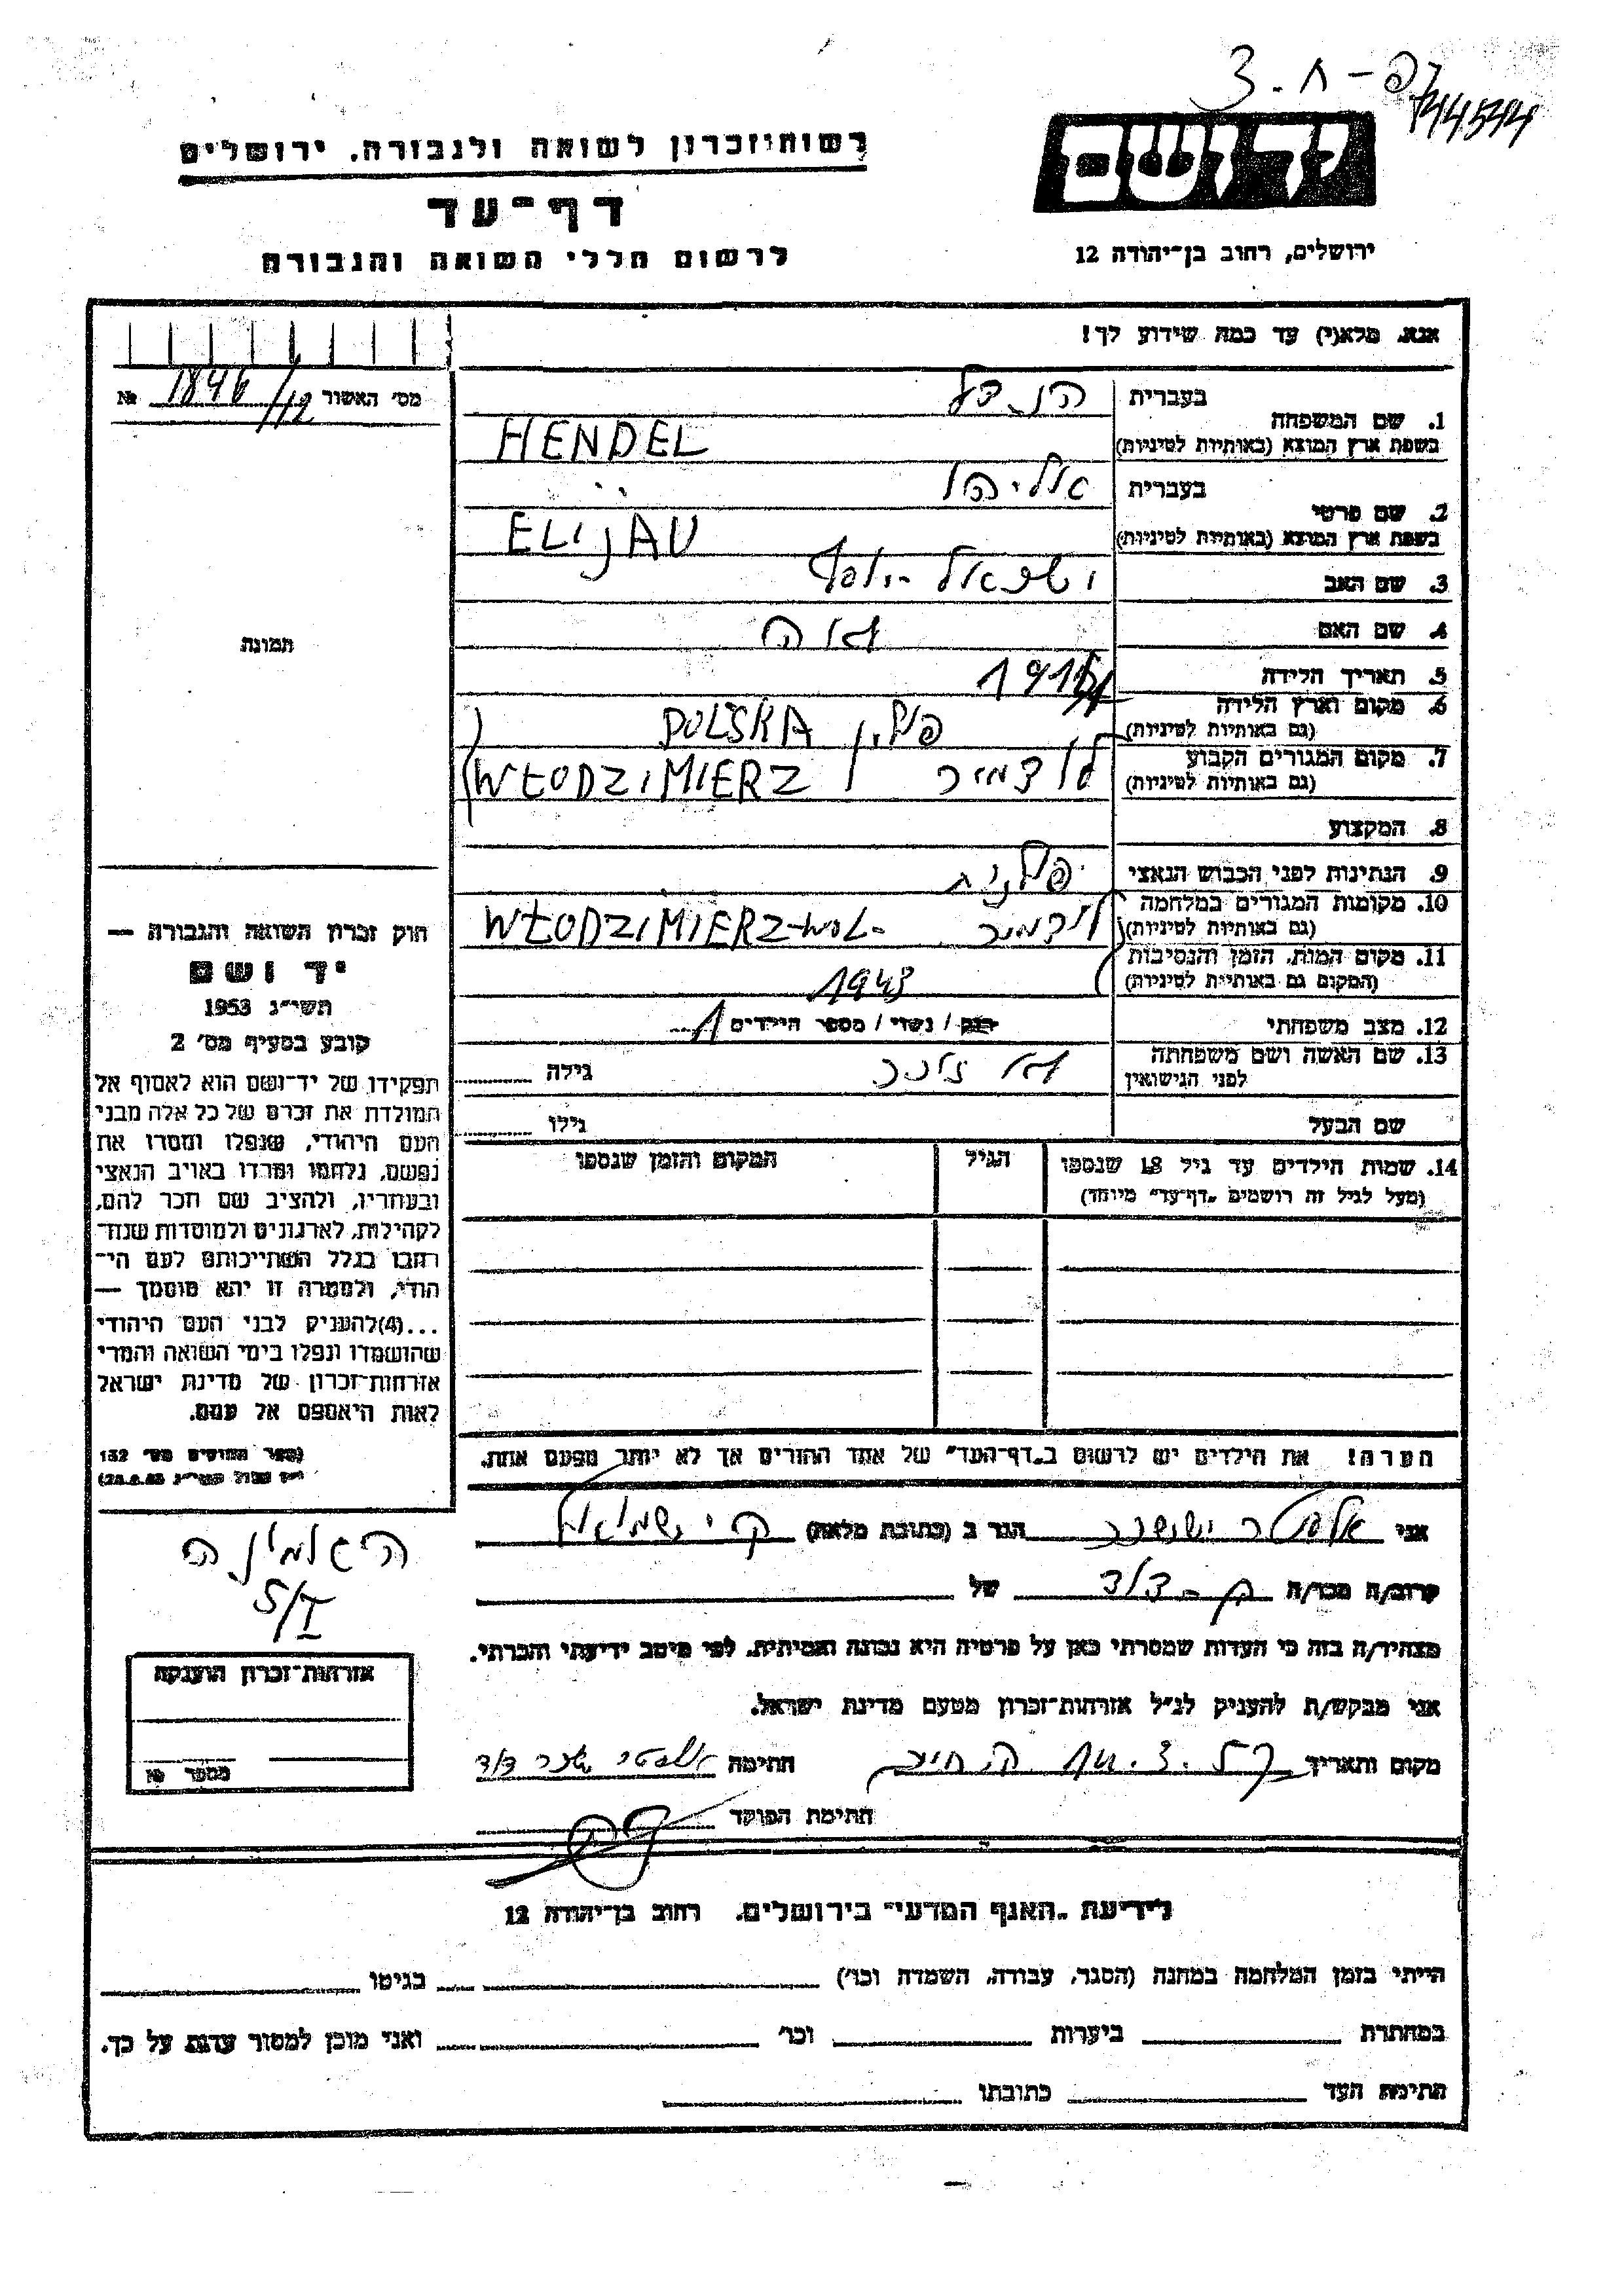 3.
744544
רשות־זכרון לשואה ולגבורה, ירושלים
יד ושם
דף־עד
לרשום חללי השואה והגבורה
ירושלים, רחוב בן־יהודה 12
אנא, מלא(י) עד כמה שידוע לך!
מס׳ האשור 1846/12 №
1. שם המשפחה
בעברית הנדל
בשפת ארץ המוצא (באותיות לטיניות) HENDEL
2. שם פרטי
בעברית אליהו
בשפת ארץ המוצא (באותיות לטיניות) ELIJAU
3. שם האב ישראל יוסף
4. שם האם
5. תאריך הלידה
6. מקום וארץ הלידה
(גם באותיות לטיניות) פולין POLSKA
7. מקום המגורים הקבוע
(גם באותיות לטיניות) WŁODZIMIERZ
8. המקצוע
9. הנתינות לפני הכבוש הנאצי פולנית
10. מקומות המגורים במלחמה
(גם באותיות לטיניות) WŁODZIMIERZ-WOL.
11. מקום המות, הזמן והנסיבות
(המקום גם באותיות לטיניות) 1943
12. מצב משפחתי רוק / נשוי / מספר הילדים 1
13. שם האשה ושם משפחתה
לפני הנישואין גילה
שם הבעל גילו
14. שמות הילדים עד גיל 18 שנספו
(מעל לגיל זה רושמים „דף־עד״ מיוחד)
הגיל
המקום והזמן שנספו
הערה! את הילדים יש לרשום ב„דף־העד״ של אחד ההורים אך לא יותר מפעם אחת.
תמונה
חוק זכרון השואה והגבורה —
יד ושם
תשי״ג 1953
קובע בסעיף מס׳ 2
תפקידו של יד־ושם הוא לאסוף אל
המולדת את זכרם של כל אלה מבני
העם היהודי, שנפלו ומסרו את
נפשם, נלחמו ומרדו באויב הנאצי
ובעוזריו, ולהציב שם וזכר להם,
לקהילות, לארגונים ולמוסדות שנח־
רבו בגלל השתייכותם לעם הי־
הודי, ולמטרה זו יהא מוסמך —
...(4)להעניק לבני העם היהודי
שהושמדו ונפלו בימי השואה והמרי
אזרחות־זכרון של מדינת ישראל
לאות היאספם אל עמם.
(ספר החוקים מס׳ 132
אני יששכר הגר ב (כתובת מלאה) ק׳ שמואל
קרוב/ה מכר/ה בן-דוד של
מצהיר/ה בזה כי העדות שמסרתי כאן על פרטיה היא נכונה ואמיתית, לפי מיטב ידיעתי והכרתי.
אני מבקש/ת להעניק לנ״ל אזרחות־זכרון מטעם מדינת ישראל.
מקום ותאריך חתימה
חתימת הפוקד
5/I
אזרחות־זכרון הוענקה
מספר №
לידיעת „האגף המדעי״ בירושלים, רחוב בן־יהודה 12
הייתי בזמן המלחמה במחנה (הסגר, עבודה, השמדה וכו׳) בגיטו
במחתרת ביערות וכו׳ ואני מוכן למסור עדות על כך.
חתימת העד כתובתו